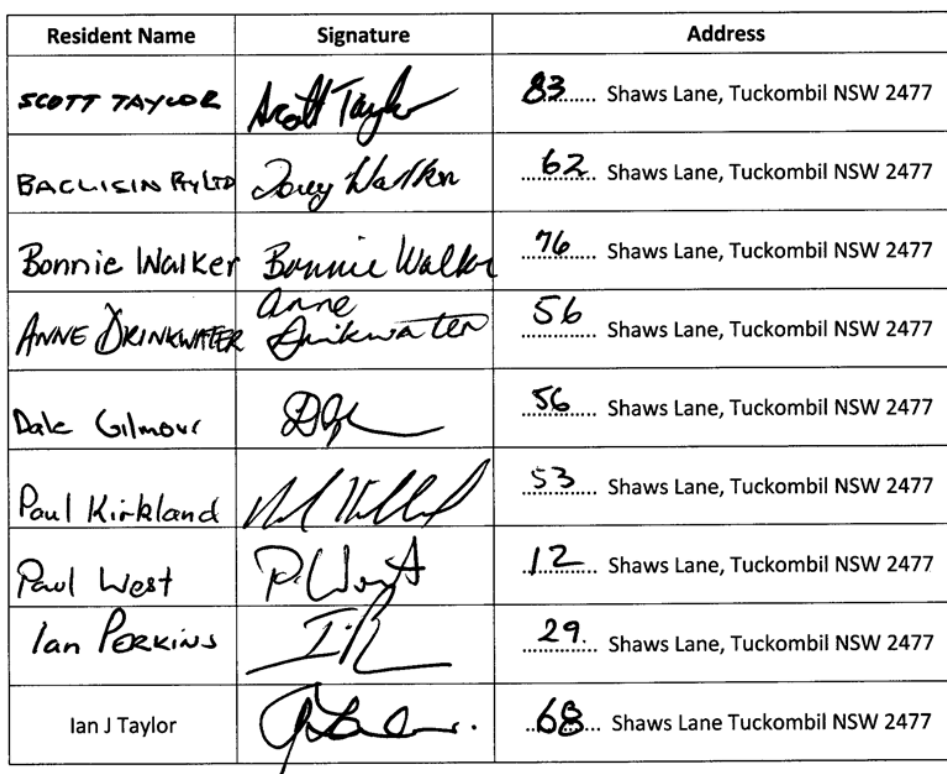 Resident Name Signature Address
SCOTT TAYLOR Scott Taylor 83 Shaws Lane, Tuckombil NSW 2477
PTY LTD 62 Shaws Lane, Tuckombil NSW 2477
Bonnie Walker Bonnie Walker 76 Shaws Lane, Tuckombil NSW 2477
Anne
ANNE DRINKWATER Drinkwater 56 Shaws Lane, Tuckombil NSW 2477
Dale Gilmour 56 Shaws Lane, Tuckombil NSW 2477
Paul Kirkland 53 Shaws Lane, Tuckombil NSW 2477
Paul West P. West 12 Shaws Lane, Tuckombil NSW 2477
Ian PERKINS 29. Shaws Lane, Tuckombil NSW 2477
Ian J Taylor 68 Shaws Lane Tuckombil NSW 2477